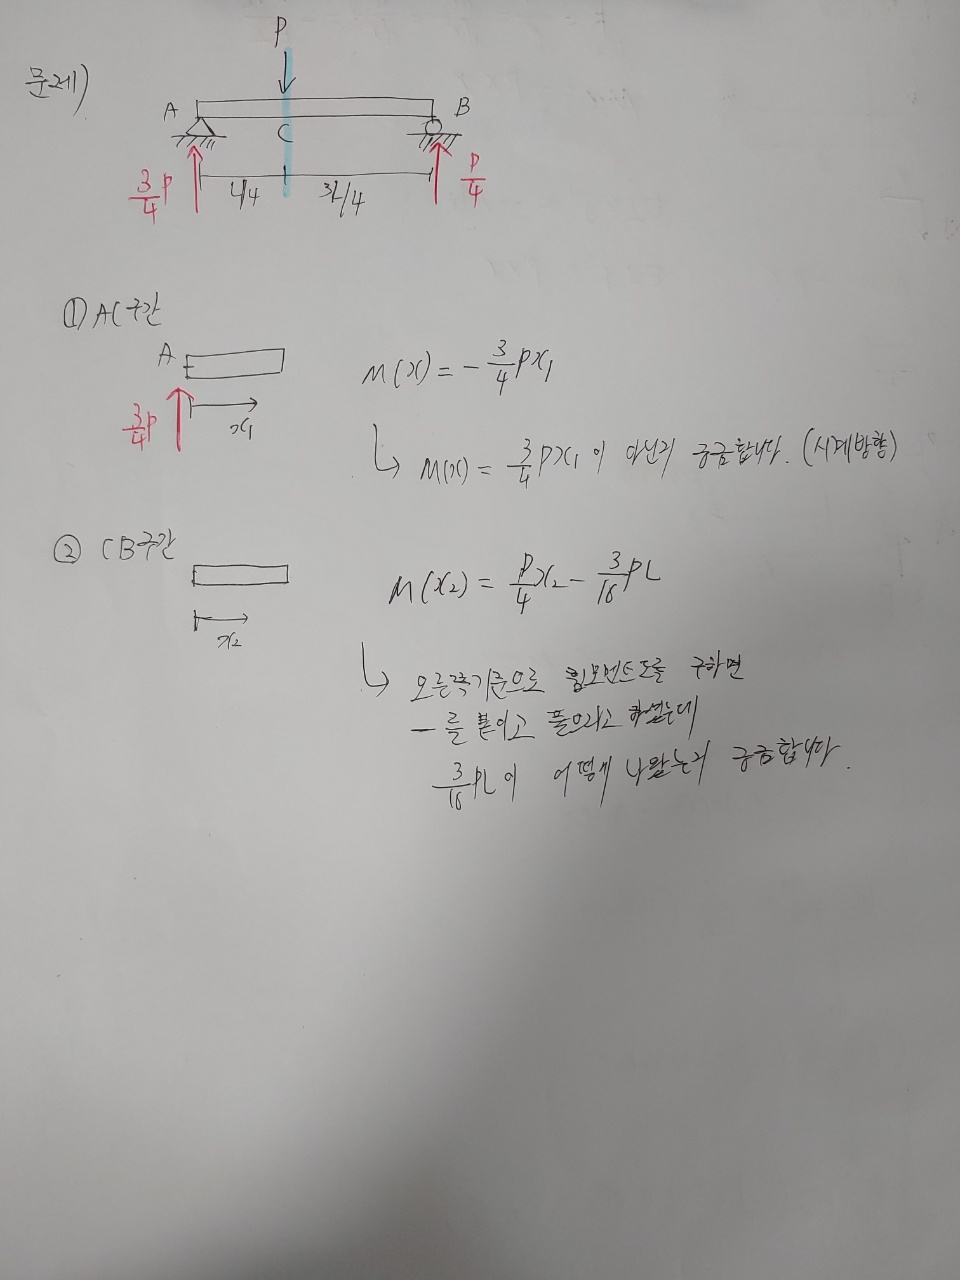 문제)
P
A
B
C
3/4 P
L/4
3L/4
P/4
① AC구간
A
3/4 P
x₁
M(x) = - 3/4 Px₁
↳ M(x) = 3/4 Px₁ 이 아닌지 궁금합니다. (시계방향)
② CB구간
x₂
M(x₂) = P/4 x₂ - 3/16 PL
↳ 오른쪽기준으로 휨모먼트도를 구하면
- 를 붙이고 풀으라고 하셨는데
3/16 PL이 어떻게 나왔는지 궁금합니다.